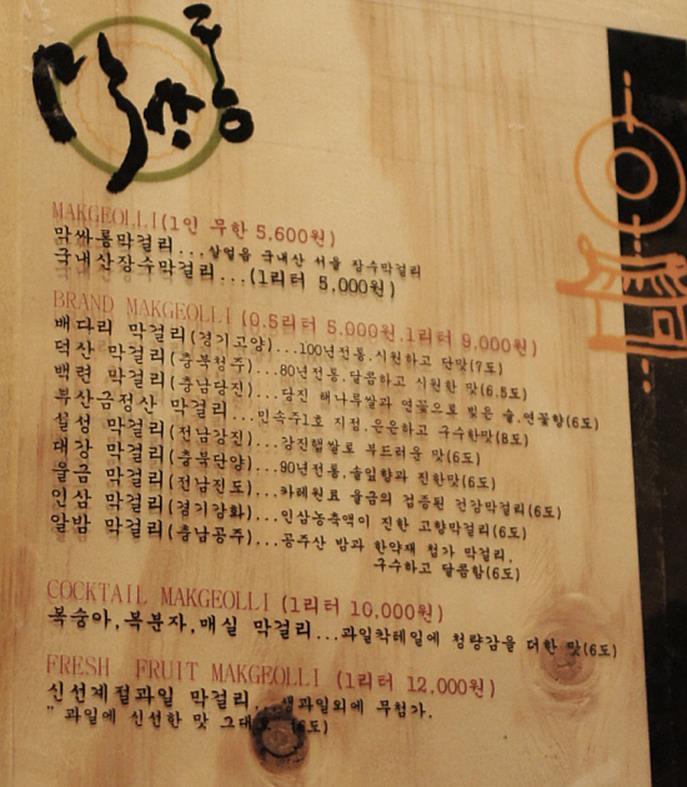 막싸롱
MAKGEOLLI(1인 무한 5,600원)
막싸롱막걸리...살얼음 국내산 서울 장수막걸리
국내산장수막걸리...(1리터 5,000원)
BRAND MAKGEOLLI(0.5리터 5,000원,1리터 9,000원)
배다리 막걸리(경기고양)...100년전통,시원하고 단맛(7도)
덕산 막걸리(충북청주)...80년전통,달콤하고 시원한 맛(6.5도)
백련 막걸리(충남당진)...당진 해나루쌀과 연꽃으로 빚은 술,연꽃향(6도)
부산금정산 막걸리...민속주1호 지정,은은하고 구수한맛(8도)
설성 막걸리(전남강진)...강진햅쌀로 부드러운 맛(6도)
대강 막걸리(충북단양)...90년전통,솔잎향과 진한맛(6도)
울금 막걸리(전남진도)...카레원료 울금의 검증된 건강막걸리(6도)
인삼 막걸리(경기강화)...인삼농축액이 진한 고향막걸리(6도)
알밤 막걸리(충남공주)...공주산 밤과 한약재 첨가 막걸리,
구수하고 달콤함(6도)
COCKTAIL MAKGEOLLI (1리터 10,000원)
복숭아,복분자,매실 막걸리...과일칵테일에 청량감을 더한 맛(6도)
FRESH FRUIT MAKGEOLLI (1리터 12,000원)
신선계절과일 막걸리...생과일외에 무첨가,
" 과일에 신선한 맛 그대로 (6도)